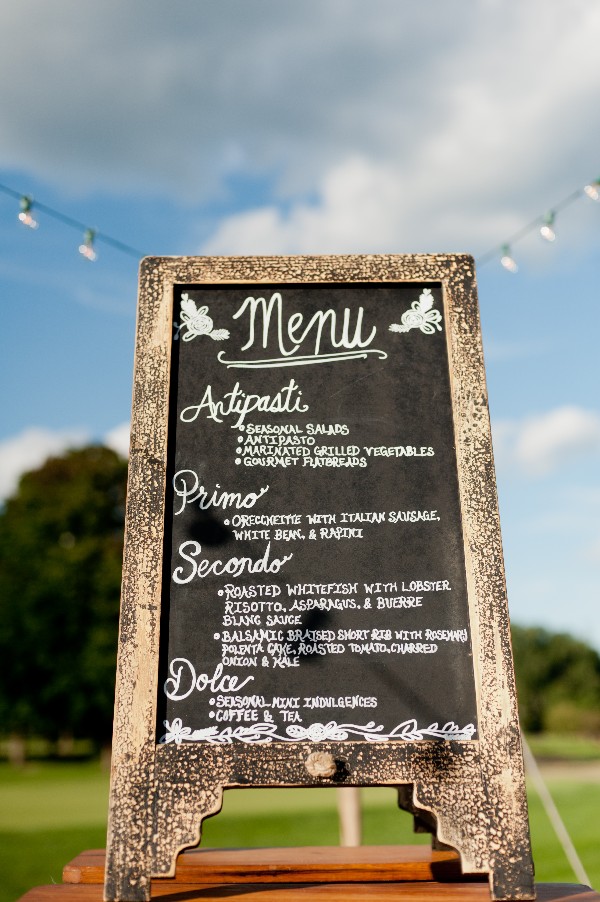 Menu
Antipasti
• SEASONAL SALADS
• ANTIPASTO
• MARINATED GRILLED VEGETABLES
• GOURMET FLATBREADS
Primo
• ORECCHEITTE WITH ITALIAN SAUSAGE,
WHITE BEAN, & RAPINI
Secondo
• ROASTED WHITEFISH WITH LOBSTER
RISOTTO, ASPARAGUS, & BUERRE
BLANC SAUCE
• BALSAMIC BRAISED SHORT RIB WITH ROSEMARY
POLENTA CAKE, ROASTED TOMATO, CHARRED
ONION & KALE
Dolce
• SEASONAL MINI INDULGENCES
• COFFEE & TEA